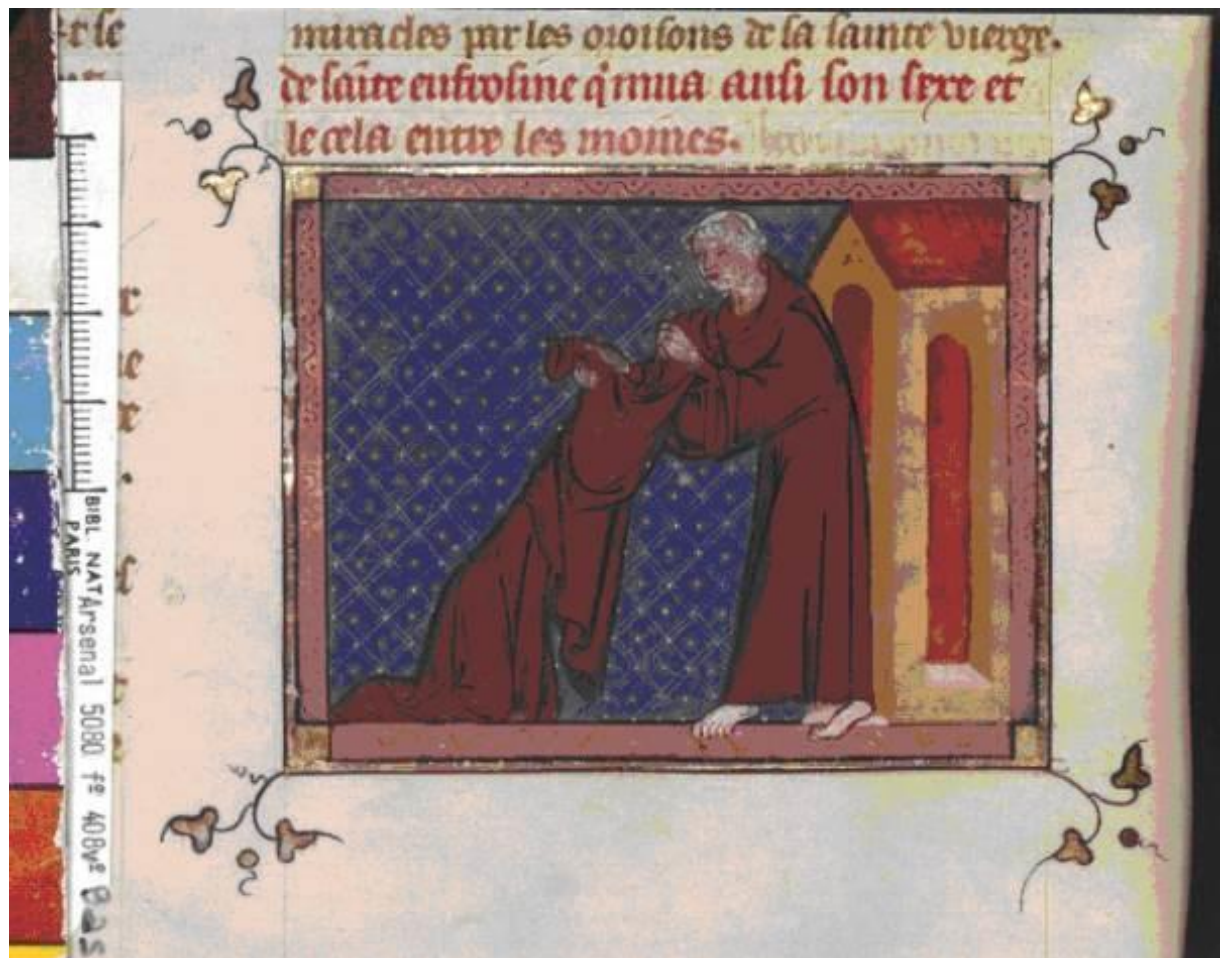 miracles par les oroisons de la sainte vierge.
de saīte eufrosine q'mua ausi son sexe et
le cela entre les moines.
BIBL. NAT
PARIS
Arsenal 5080 fº 408vº Bas